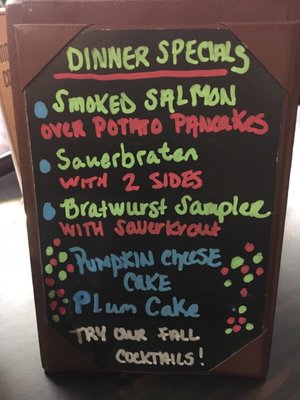 DINNER SPECIALS
SMOKED SALMON
OVER POTATO PANCAKES
Sauerbraten
WITH 2 SIDES
Bratwurst Sampler
WITH Sauerkrout
PUMPKIN CHEESE
CAKE
Plum Cake
TRY OUR FALL
COCKTAILS!